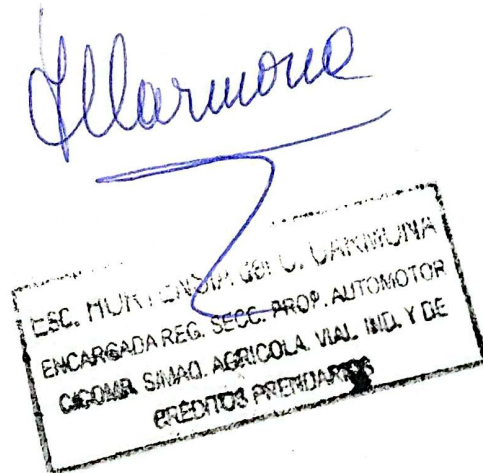 ESC. HORTENSIA del C. CARMONA
ENCARGADA REG. SECC. PROP. AUTOMOTOR
AGRICOLA, VIAL, IND. Y DE
CREDITOS PRENDARIOS